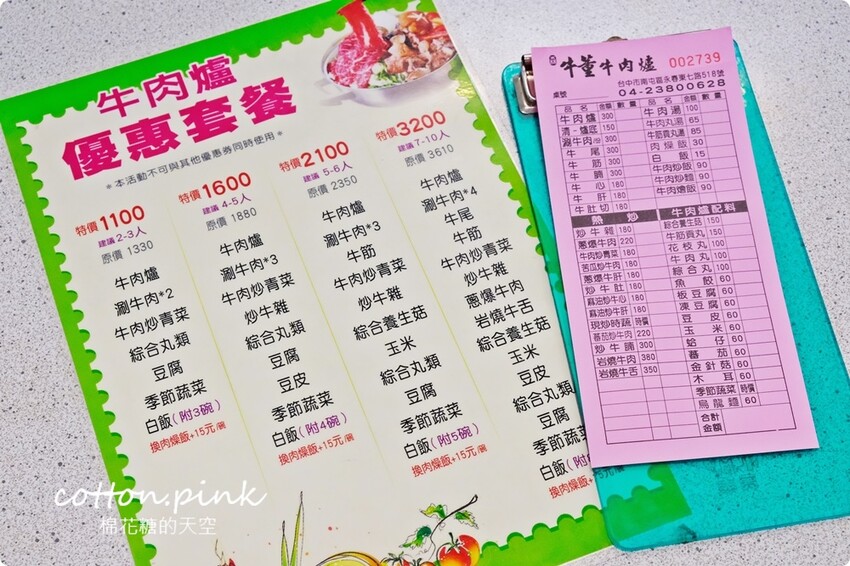 牛肉爐
優惠套餐
*本活動不可與其他優惠券同時使用*
特價1100
建議 2-3人
原價 1330
牛肉爐
涮牛肉*2
牛肉炒青菜
綜合丸類
豆腐
季節蔬菜
白飯(附3碗)
換肉燥飯+15元/碗
特價1600
建議 4-5人
原價 1880
牛肉爐
涮牛肉*3
牛肉炒青菜
炒牛雜
綜合丸類
豆腐
豆皮
季節蔬菜
白飯(附4碗)
換肉燥飯+15元/碗
特價2100
建議 5-6人
原價 2350
牛肉爐
涮牛肉*3
牛筋
牛肉炒青菜
炒牛雜
綜合養生菇
玉米
綜合丸類
豆腐
季節蔬菜
白飯(附5碗)
換肉燥飯+15元/碗
特價3200
建議 7-10人
原價 3610
牛肉爐
涮牛肉*4
牛尾
牛筋
牛肉炒青菜
炒牛雜
蔥爆牛肉
岩燒牛舌
綜合養生菇
玉米
豆皮
綜合丸類
豆腐
季節蔬菜
白飯(附
換肉燥飯+15元/碗
牛董牛肉爐 002739
台中市南屯區永春東七路518號
桌號 04-23800628
品名 金額 數量
牛肉爐 300
清-爐底 150
涮牛肉/份 300
牛尾 300
牛筋 300
牛腩 300
牛心 180
牛肝 180
牛肚切 180
熱炒
炒牛雜 180
蔥爆牛肉 220
牛肉炒青菜 180
苦瓜炒牛肉 180
蔥爆牛肝 180
炒牛肚 180
麻油炒牛心 180
麻油炒牛肝 180
現炒時蔬 時價
蕃茄炒牛肉 220
炒牛腩 300
岩燒牛肉 380
岩燒牛舌 350
品名 金額 數量
牛肉湯 100
牛肉丸湯 65
牛筋貢丸湯 85
肉燥飯 30
白飯 15
牛肉炒飯 90
牛肉炒麵 90
牛肉燴飯 90
牛肉爐配料
綜合養生菇 150
牛筋貢丸 150
花枝丸 100
牛肉丸 100
綜合丸 100
魚餃 60
板豆腐 60
凍豆腐 60
豆皮 60
玉米 60
蛤仔 60
蕃茄 60
金針菇 60
木耳 60
季節蔬菜 時價
烏龍麵 60
合計
金額
cotton.pink
棉花糖的天空